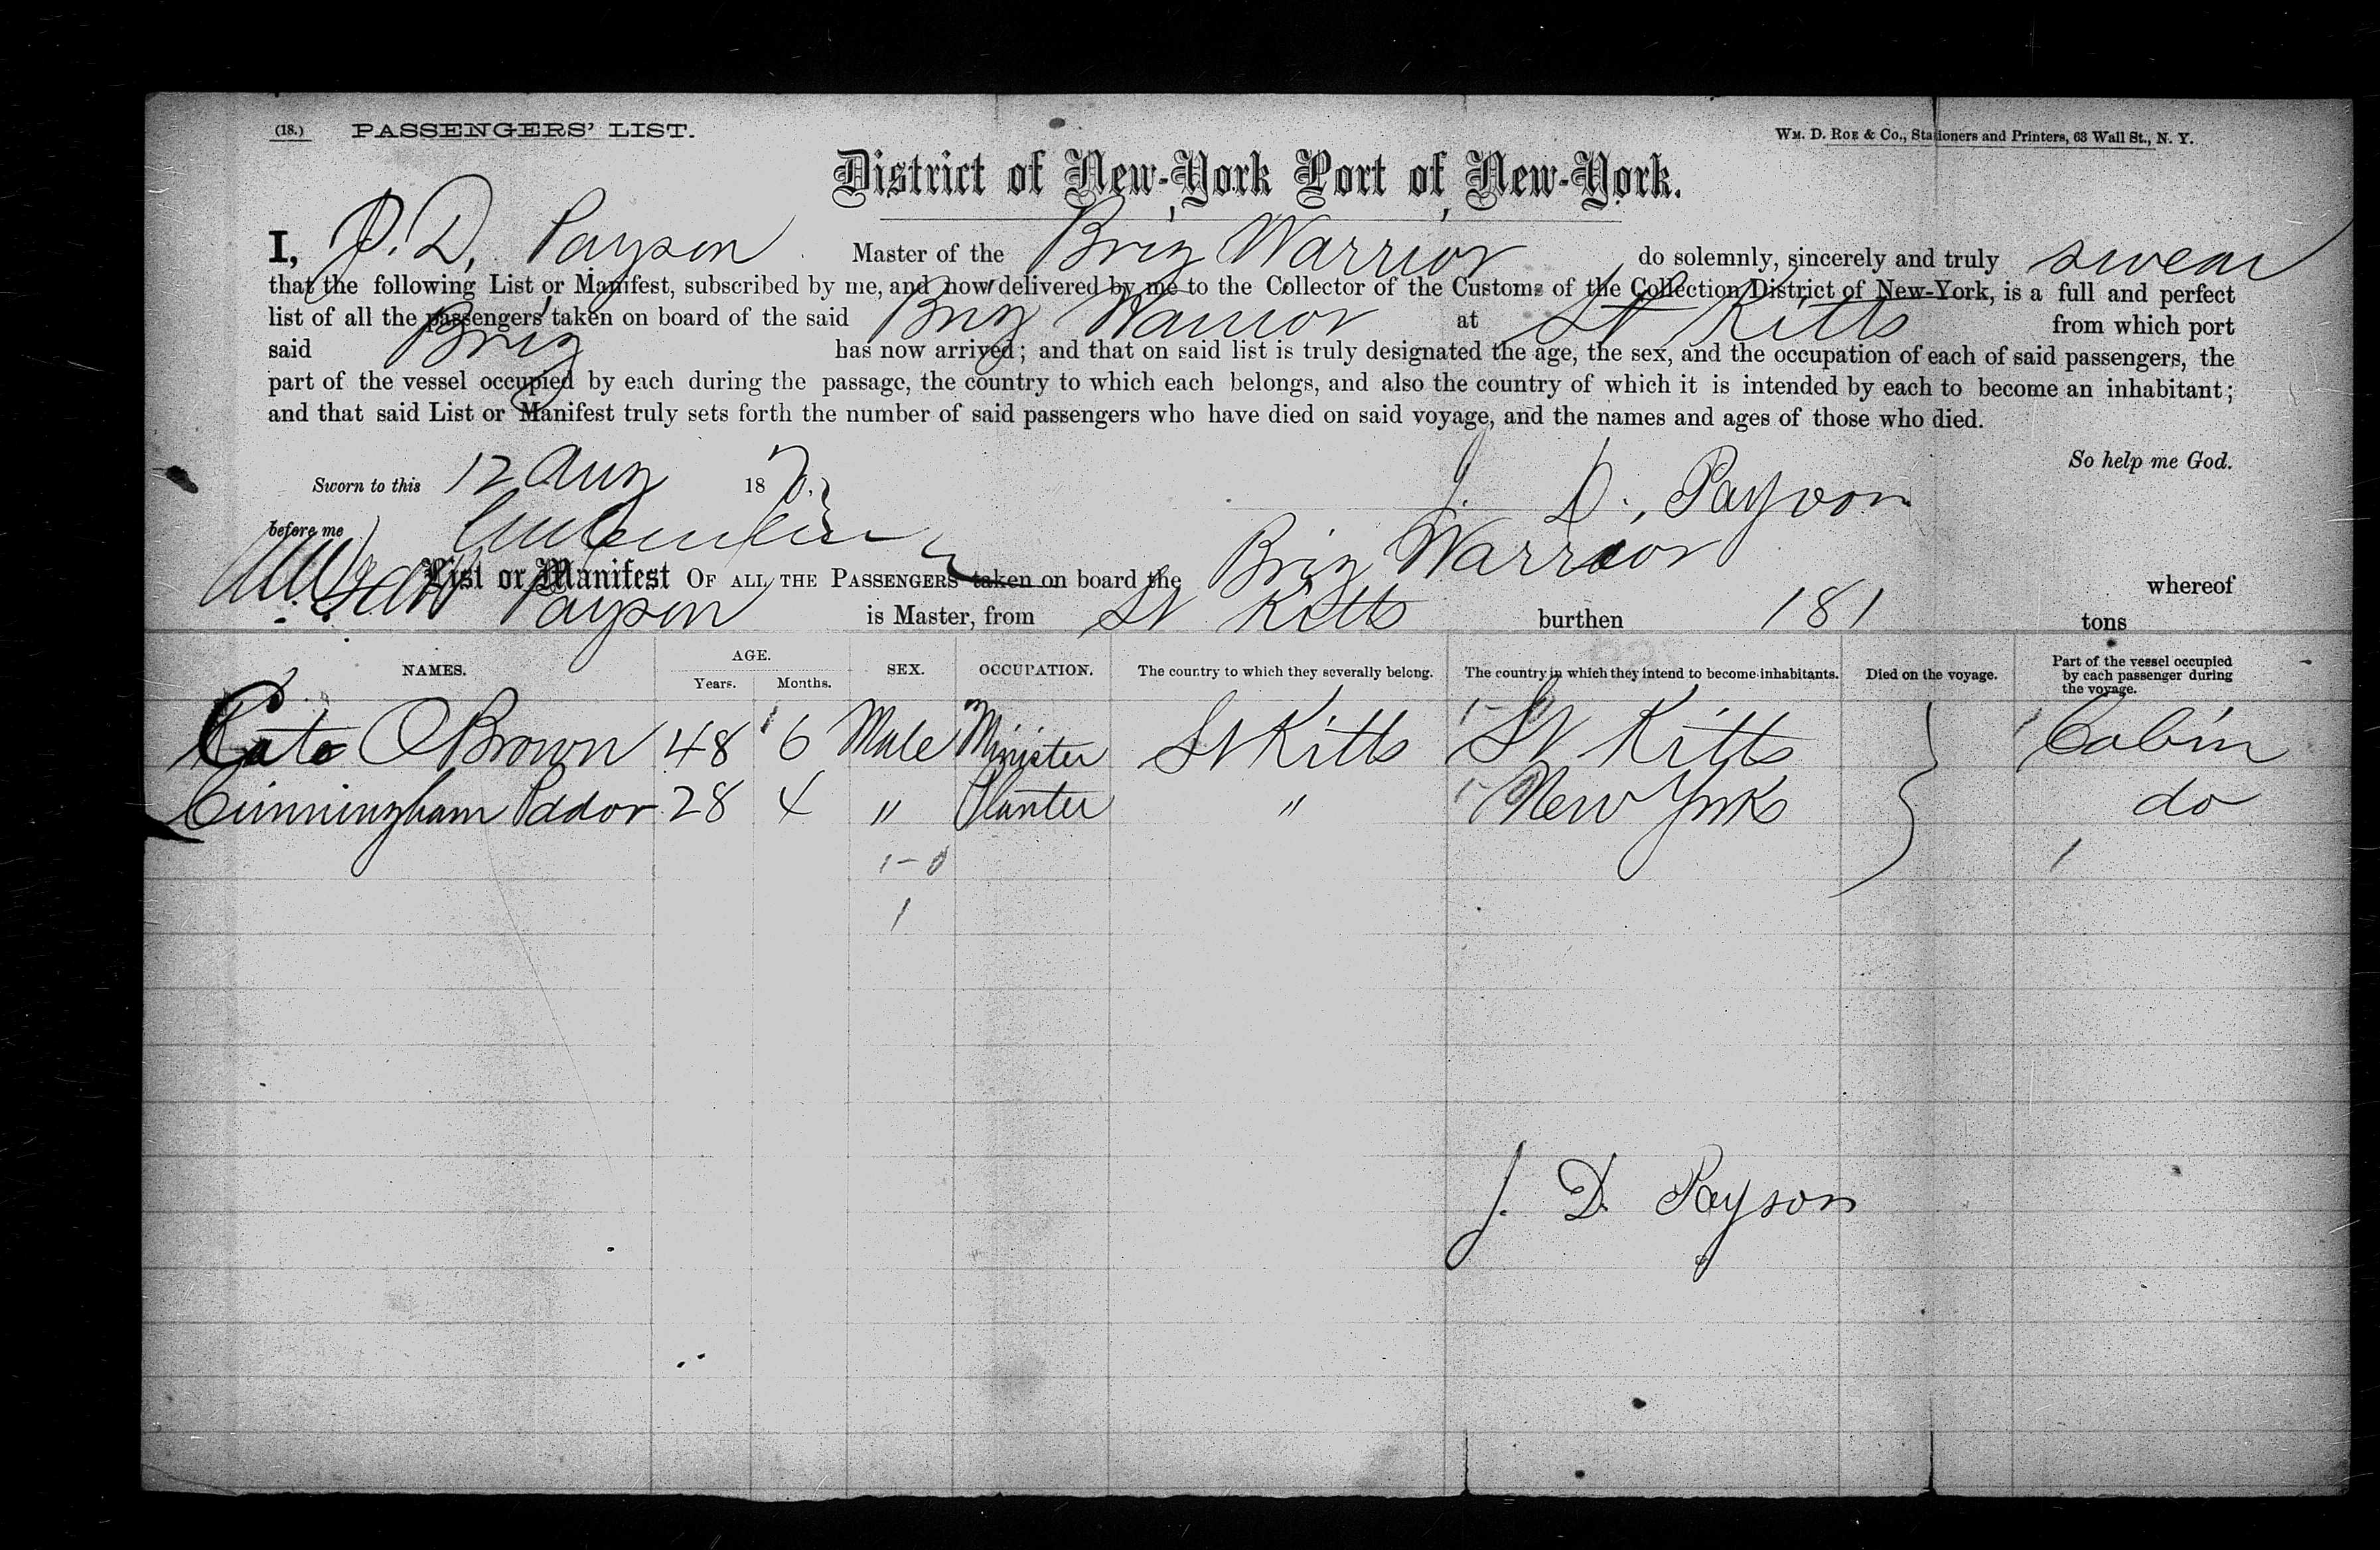 (18.) PASSENGERS' LIST. WM. D. ROE & CO., Stationers and Printers, 63 Wall St., N. Y.
District of New-York, Port of New-York.
I, J. D. Payson Master of the Brig Warrior do solemnly, sincerely and truly swear
that the following List or Manifest, subscribed by me, and now delivered by me to the Collector of the Customs of the Collection District of New-York, is a full and perfect
list of all the passengers taken on board of the said Brig Warrior at St Kitts from which port
said Brig has now arrived; and that on said list is truly designated the age, the sex, and the occupation of each of said passengers, the
part of the vessel occupied by each during the passage, the country to which each belongs, and also the country of which it is intended by each to become an inhabitant;
and that said List or Manifest truly sets forth the number of said passengers who have died on said voyage, and the names and ages of those who died.
So help me God.
Sworn to this 12 Aug 1870. J. D. Payson
before me
List or Manifest OF ALL THE PASSENGERS taken on board the Brig Warrior whereof
Payson is Master, from St Kitts burthen 181 tons
NAMES. AGE. Years. Months. SEX. OCCUPATION. The country to which they severally belong. The country in which they intend to become inhabitants. Died on the voyage. Part of the vessel occupied by each passenger during the voyage.
Cato O Brown 48 6 Male Minister St Kitts St Kitts Cabin
Cunningham 28 4 " Planter " New York do
1-0
1
1
J. D. Payson